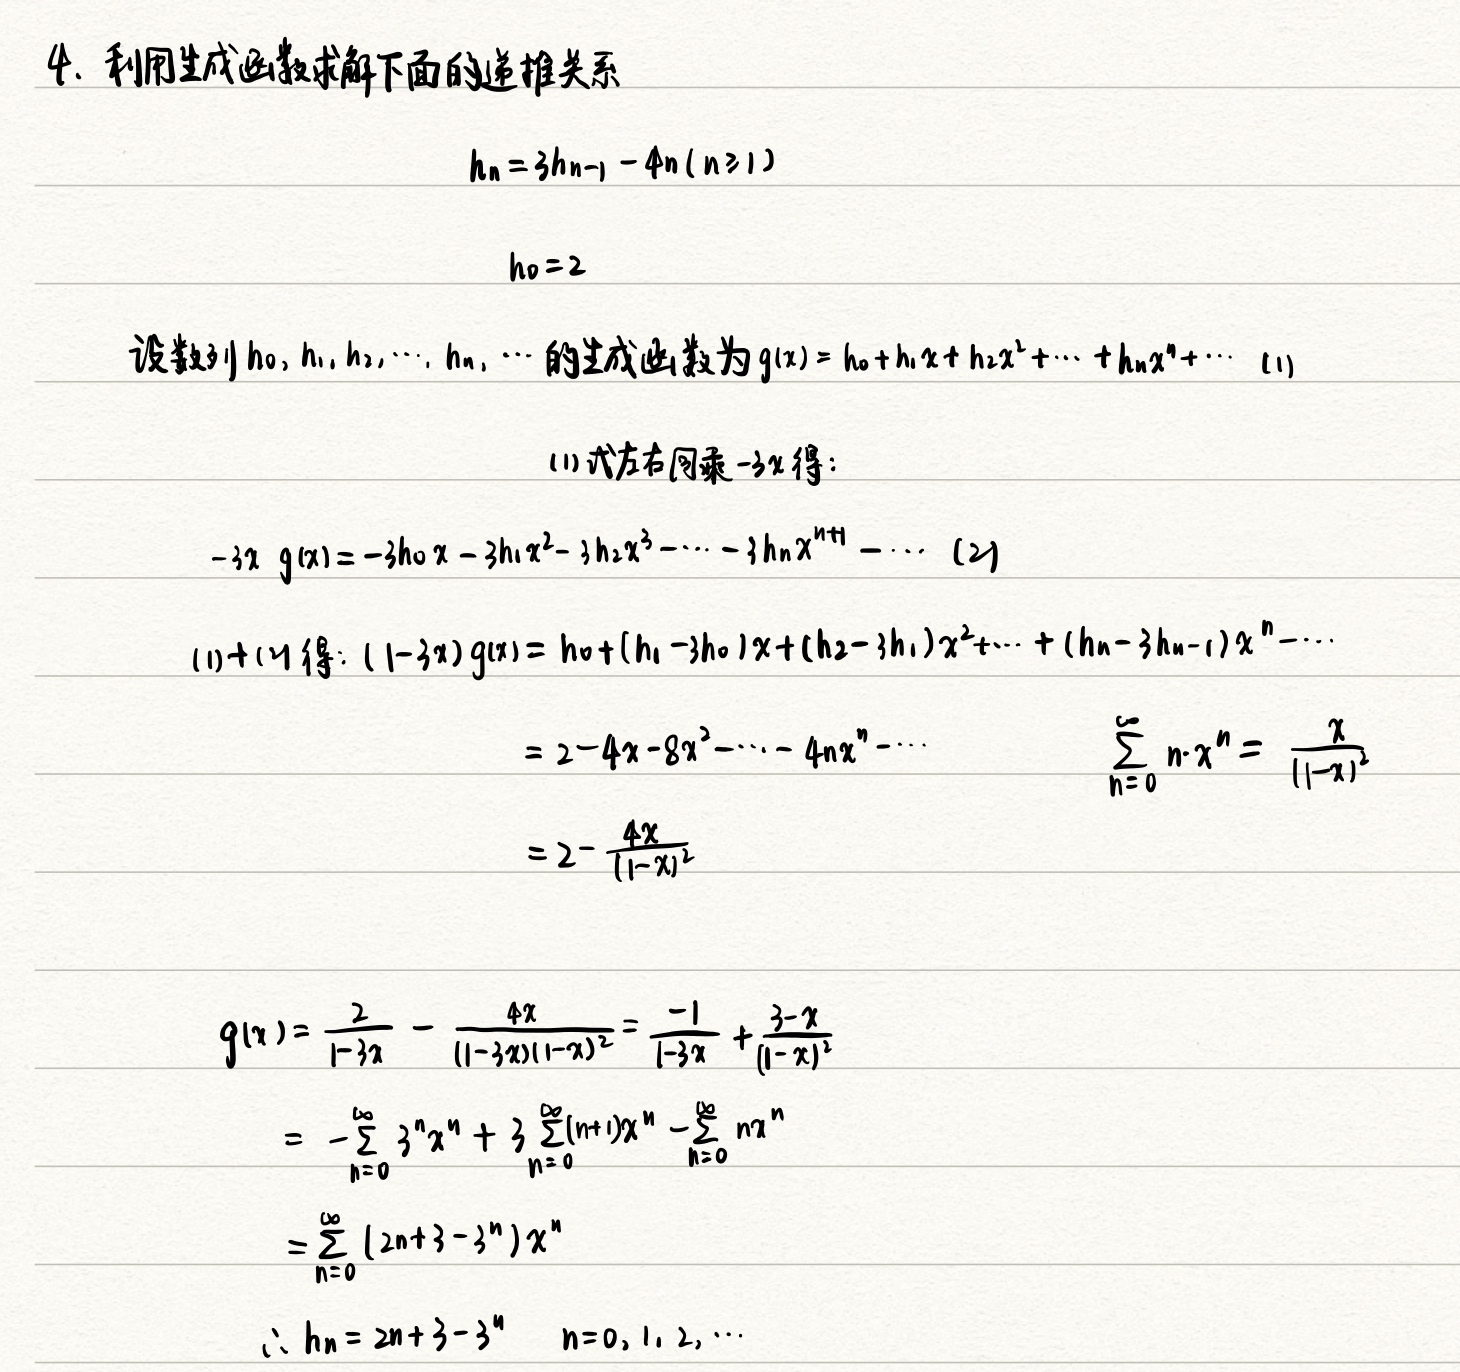 4、利用生成函数求解下面的递推关系
hₙ = 3hₙ₋₁ - 4n (n ≥ 1)
h₀ = 2
设数列 h₀, h₁, h₂, ⋯, hₙ, ⋯ 的生成函数为 g(x) = h₀ + h₁x + h₂x² + ⋯ + hₙxⁿ + ⋯ (1)
(1) 式左右同乘 -3x 得:
-3x g(x) = -3h₀x - 3h₁x² - 3h₂x³ - ⋯ - 3hₙxⁿ⁺¹ - ⋯ (2)
(1)+(2) 得: (1-3x) g(x) = h₀ + (h₁ - 3h₀)x + (h₂ - 3h₁)x² + ⋯ + (hₙ - 3hₙ₋₁)xⁿ - ⋯
= 2 - 4x - 8x² - ⋯ - 4nxⁿ - ⋯ \sum_{n=0}^{∞} n·xⁿ = \frac{x}{(1-x)²}
= 2 - \frac{4x}{(1-x)²}
g(x) = \frac{2}{1-3x} - \frac{4x}{(1-3x)(1-x)²} = \frac{-1}{1-3x} + \frac{3-x}{(1-x)²}
= -\sum_{n=0}^{∞} 3ⁿxⁿ + 3\sum_{n=0}^{∞} (n+1)xⁿ - \sum_{n=0}^{∞} nxⁿ
= \sum_{n=0}^{∞} (2n+3-3ⁿ)xⁿ
∴ hₙ = 2n+3-3ⁿ n=0, 1, 2, ⋯